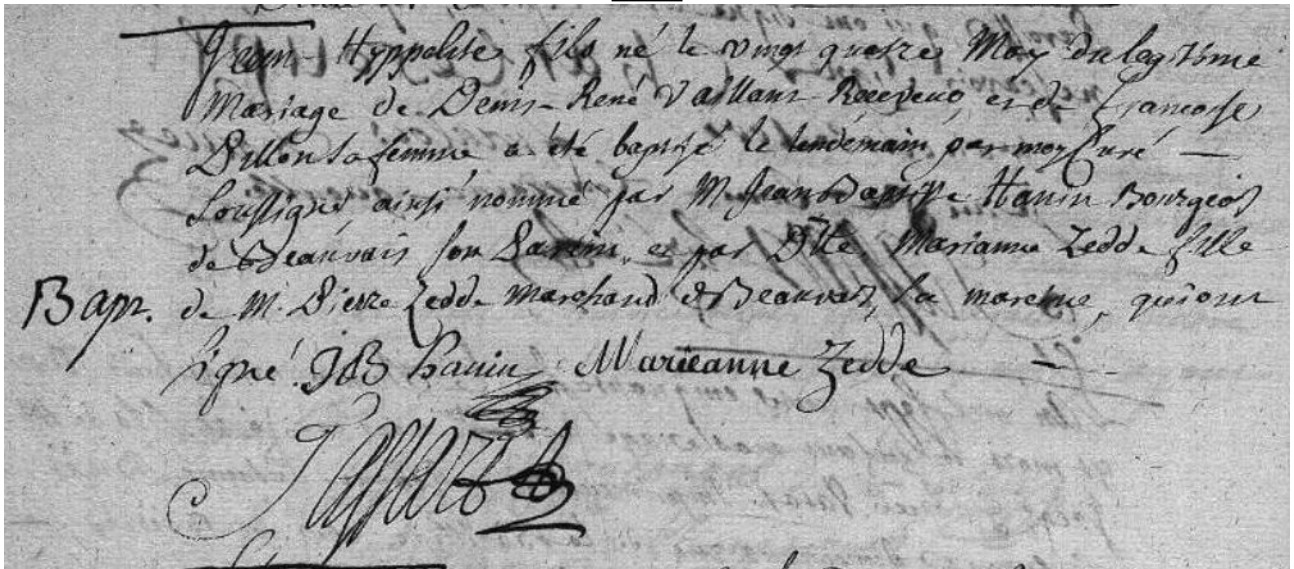 Jean Hyppolite, fils né le vingt quatre May du legitime
Mariage de Denis-René Vaillant Receveur, et de Francoise
Dillon sa femme a été baptisé le lendemain par moy Curé —
soussigné, ainsi nommé par M. Jean Baptiste Hanin Bourgeois
de Beauvais son Parein, et par Dlle. Marianne Zedde fille
Bapt. de M. Pierre Zedde Marchand à Beauvais, sa mareine, qui ont
signé. JB hanin Marieanne Zedde —